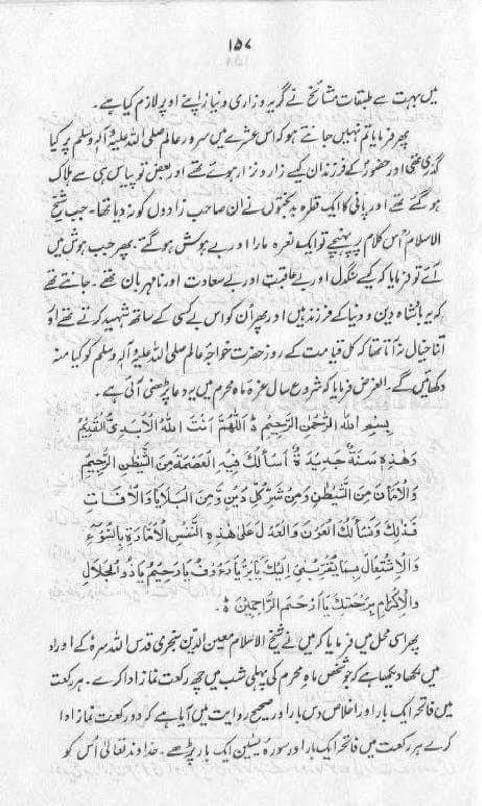 ۱۵۷
میں بہت سے طبقات مشائخ نے گریہ وزاری و نیاز اپنے اوپر لازم کیا ہے۔
پھر فرمایا تم نہیں جانتے ہو کہ اس عشرے میں سرور عالم صلی اللہ علیہ وآلہ وسلم پر کیا
گذری تھی اور حضور کے فرزندان کیسے زار و نزار ہوئے تھے اور بعض تو پیاس ہی سے ہلاک
ہو گئے تھے اور پانی کا ایک قطرہ بدبختوں نے ان صاحب زادوں کو نہ دیا تھا۔ جب شیخ
الاسلام اس کلام پر پہنچے تو ایک نعرہ مارا اور بے ہوش ہو گئے۔ پھر جب ہوش میں
آئے تو فرمایا کہ کیسے سنگدل اور بے عاقبت اور بے سعادت اور نامہربان تھے۔ جانتے تھے
کہ یہ بادشاہ دین و دنیا کے فرزند ہیں اور پھر اُن کو اس بے کسی کے ساتھ شہید کرتے تھے اور
اتنا خیال نہ آتا تھا کہ کل قیامت کے روز حضرت خواجۂ عالم صلی اللہ علیہ وآلہ وسلم کو کیا منہ
دکھائیں گے۔ الغرض فرمایا کہ شروع سال غرۂ ماہ محرم میں یہ دعا پڑھنی آئی ہے۔
بِسْمِ اللهِ الرَّحْمٰنِ الرَّحِيْمِ ۃ اَللّٰهُمَّ اَنْتَ اللهُ الْاَبَدِىُّ الْقَدِيْمُ
وَهٰذِهٖ سَنَةٌ جَدِيْدَةٌ ۃ اَسْأَلُكَ فِيْهِ الْعَصْمَةَ مِنَ الشَّيْطٰنِ الرَّجِيْمِ
وَالْاَمَانَ مِنَ الشَّيْطٰنِ وَمِنْ شَرِّ كُلِّ دَيْنٍ وَّمِنَ الْبَلَايَا وَالْاٰفَاتِ
وَنَسْأَلُكَ الْعَوْنَ وَالْعَدْلَ عَلٰى هٰذِهِ النَّفْسِ الْاَمَّارَةِ بِالسُّوْٓءِ
وَالْاِشْتِغَالَ بِمَا يُقَرِّبُنِىْ اِلَيْكَ يَا بَرُّ يَا رَءُوْفُ يَا رَحِيْمُ يَا ذُوالْجَلَالِ
وَالْاِكْرَامِ بِرَحْمَتِكَ يَا اَرْحَمَ الرَّاحِمِيْنَ ۃ۔
پھر اسی محل میں فرمایا کہ میں نے شیخ الاسلام معین الدین سنجری قدس اللہ سرہٗ کے اوراد
میں لکھا دیکھا ہے کہ جو شخص ماہ محرم کی پہلی شب میں چھ رکعت نماز ادا کرے۔ ہر رکعت
میں فاتحہ ایک بار اور اخلاص دس بار اور صحیح روایت میں آیا ہے کہ دو رکعت نماز ادا
کرے ہر رکعت میں فاتحہ ایک بار اور سورۂ یٰسین ایک بار پڑھے۔ خداوند تعالیٰ اُس کو